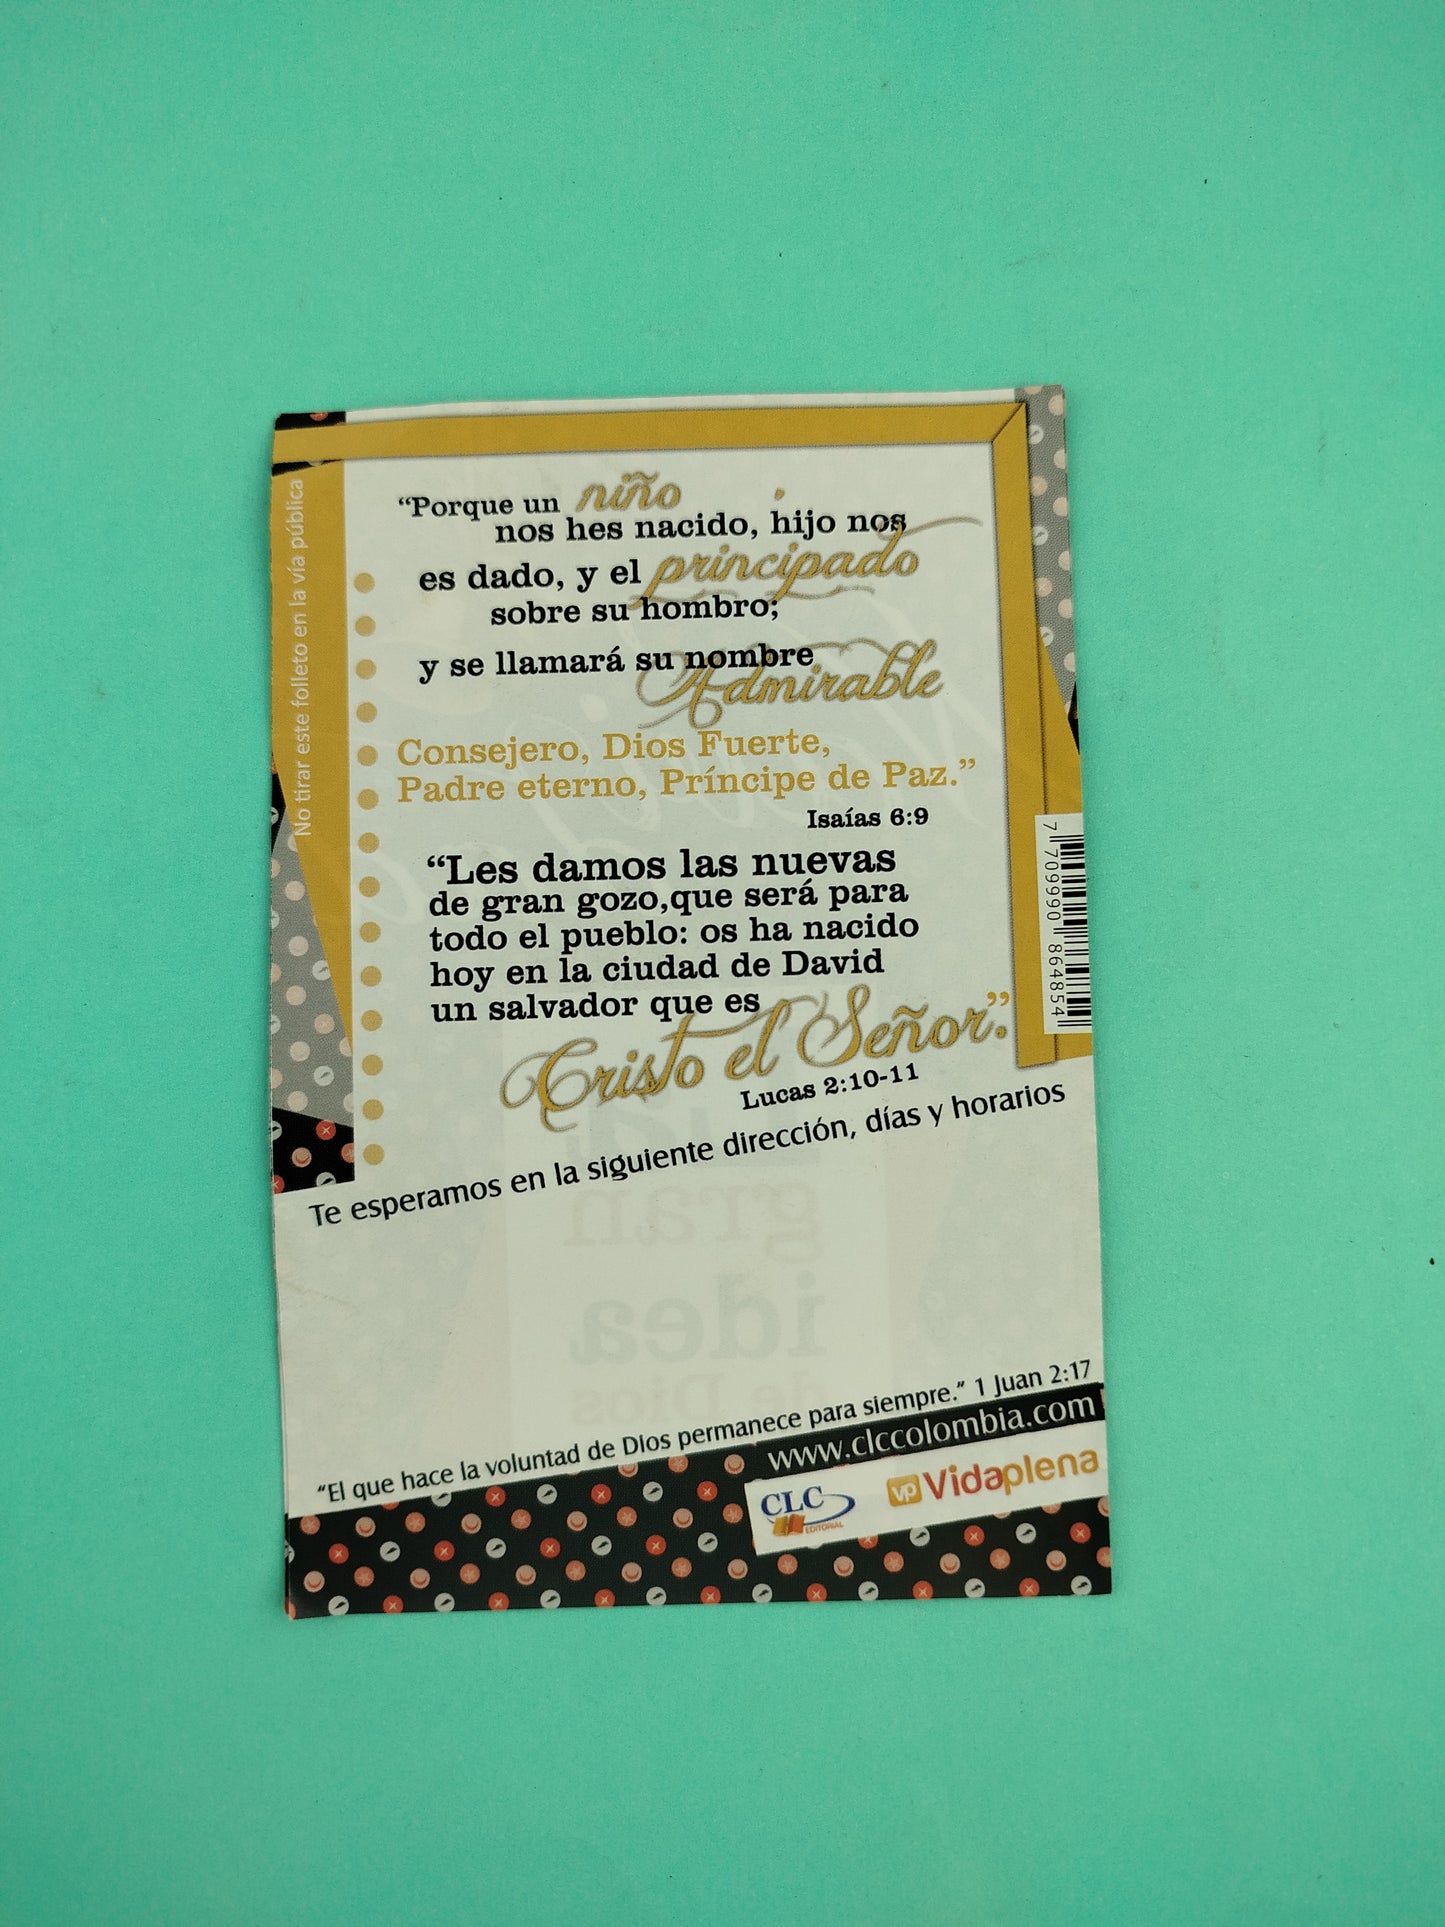 No tirar este folleto en la vía pública
“Porque un niño
nos hes nacido, hijo nos
es dado, y el principado
sobre su hombro;
y se llamará su nombre
Admirable
Consejero, Dios Fuerte,
Padre eterno, Príncipe de Paz.”
Isaías 6:9
“Les damos las nuevas
de gran gozo,que será para
todo el pueblo: os ha nacido
hoy en la ciudad de David
un salvador que es
Cristo el Señor”.
Lucas 2:10-11
7 709990 864854
Te esperamos en la siguiente dirección, días y horarios
gran
idea
de Dios
“El que hace la voluntad de Dios permanece para siempre.” 1 Juan 2:17
www.clccolombia.com
CLC
EDITORIAL
vp Vidaplena